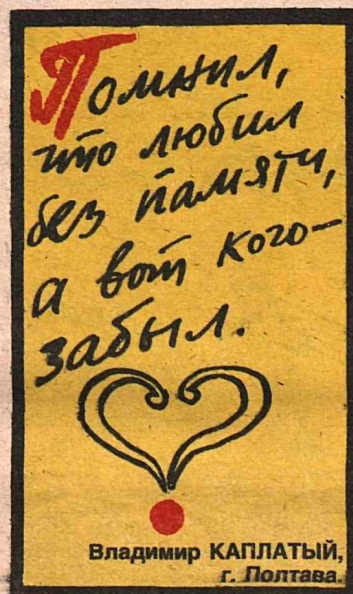 Помнил,
что любил
без памяти,
а вот кого—
забыл.
Владимир КАПЛАТЫЙ,
г. Полтава.